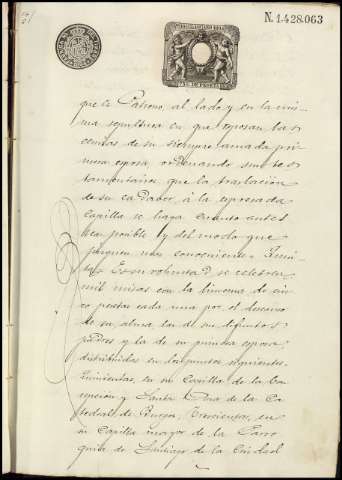 N. 1.428.063
que es Patrono, al lado y en la mis-
ma sepultura en que reposan las
cenizas de su siempre amada pri-
mera esposa, ordenando sus tes-
tamentarios que la traslacion
de su cadaver á la expresada
capilla se haga cuanto antes
sea posible y del modo que
juzguen mas conveniente.
Es su voluntad se celebren
mil misas con la limosna de cin-
co pesetas cada una por el descanso
de su alma, las de sus difuntos
padres y la de su primera esposa,
distribuidas en los puntos siguientes.
Quinientas, en su Capilla de la Con-
cepcion y Santa Ana de la Ca-
tedral de Burgos; Trescientas, en
su Capilla mayor de la Parro-
quia de Santiago de la Ciudad